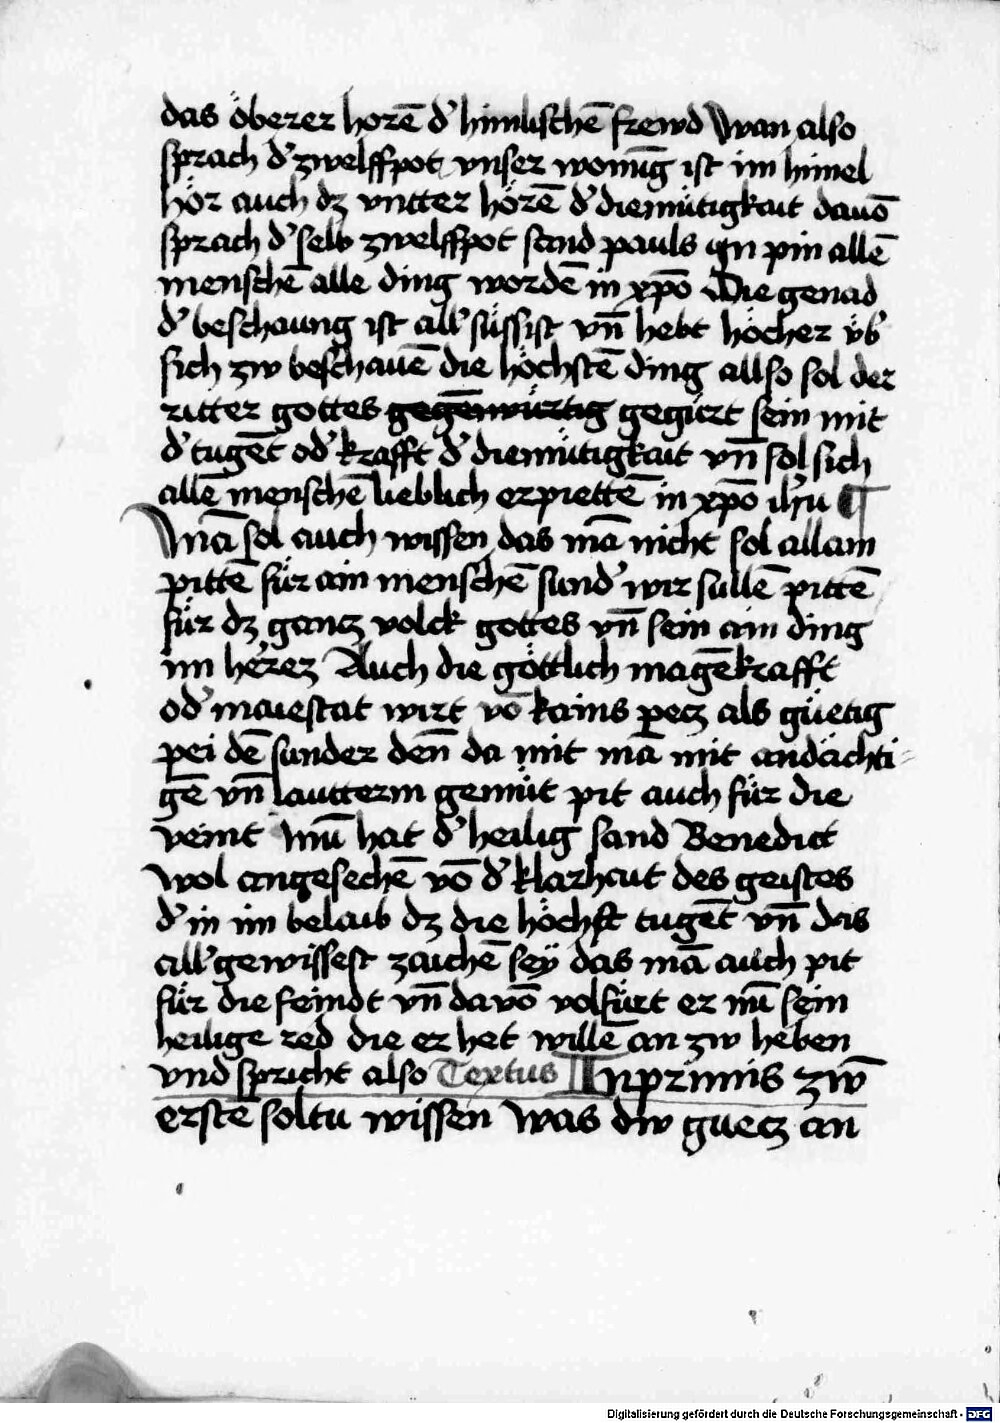 das öberer horē d' himlischē frewd Wan also
sprach d' zwelffpot vnser wonūg ist im himel
hör auch dz vntter hörē d' diemütigkait dauō
sprach d' selb zwelffpot sand pauls ich pin allē
menschē alle ding wordē in xpō Die genad
d' beschaung ist all' süssist vn̄ hebt höcher üb'
sich zw beschauē die höchstē ding allso sol der
ritter gottes gegēnwürtig gegürt sein mit
d' tugēt od' krafft d' diemütigkait vn̄ sol sich
allē menschē lieblich erpiettē in xpō ihu ¶
Mā sol auch wissen das mā nicht sol allain
pittē für ain menschē sund' wir sullē pittē
für dz gantz volck gottes vn̄ sein ain ding
im herez Auch die göttlich magēkrafft
od' maiestat wirt vō kains petz als güetig
pei dē sunder den̄ da mit mā mit andächti-
gē vn̄ lautterm gemüt pit auch für die
veint Nun̄ hat d' heilig sand Benedict
wol angesechē vō d' klarhait des geistes
d' in im belaib dz die höchst tugēt vn̄ das
all' gewissest zaichē sey das mā auch pit
für die feindt vn̄ dauō volfürt er nū sein
heilige red die er het willē an zw heben
vnd spricht also Textus Inprimis zw̄
erstē soltu wissen was dw guetz an
Digitalisierung gefördert durch die Deutsche Forschungsgemeinschaft - DFG